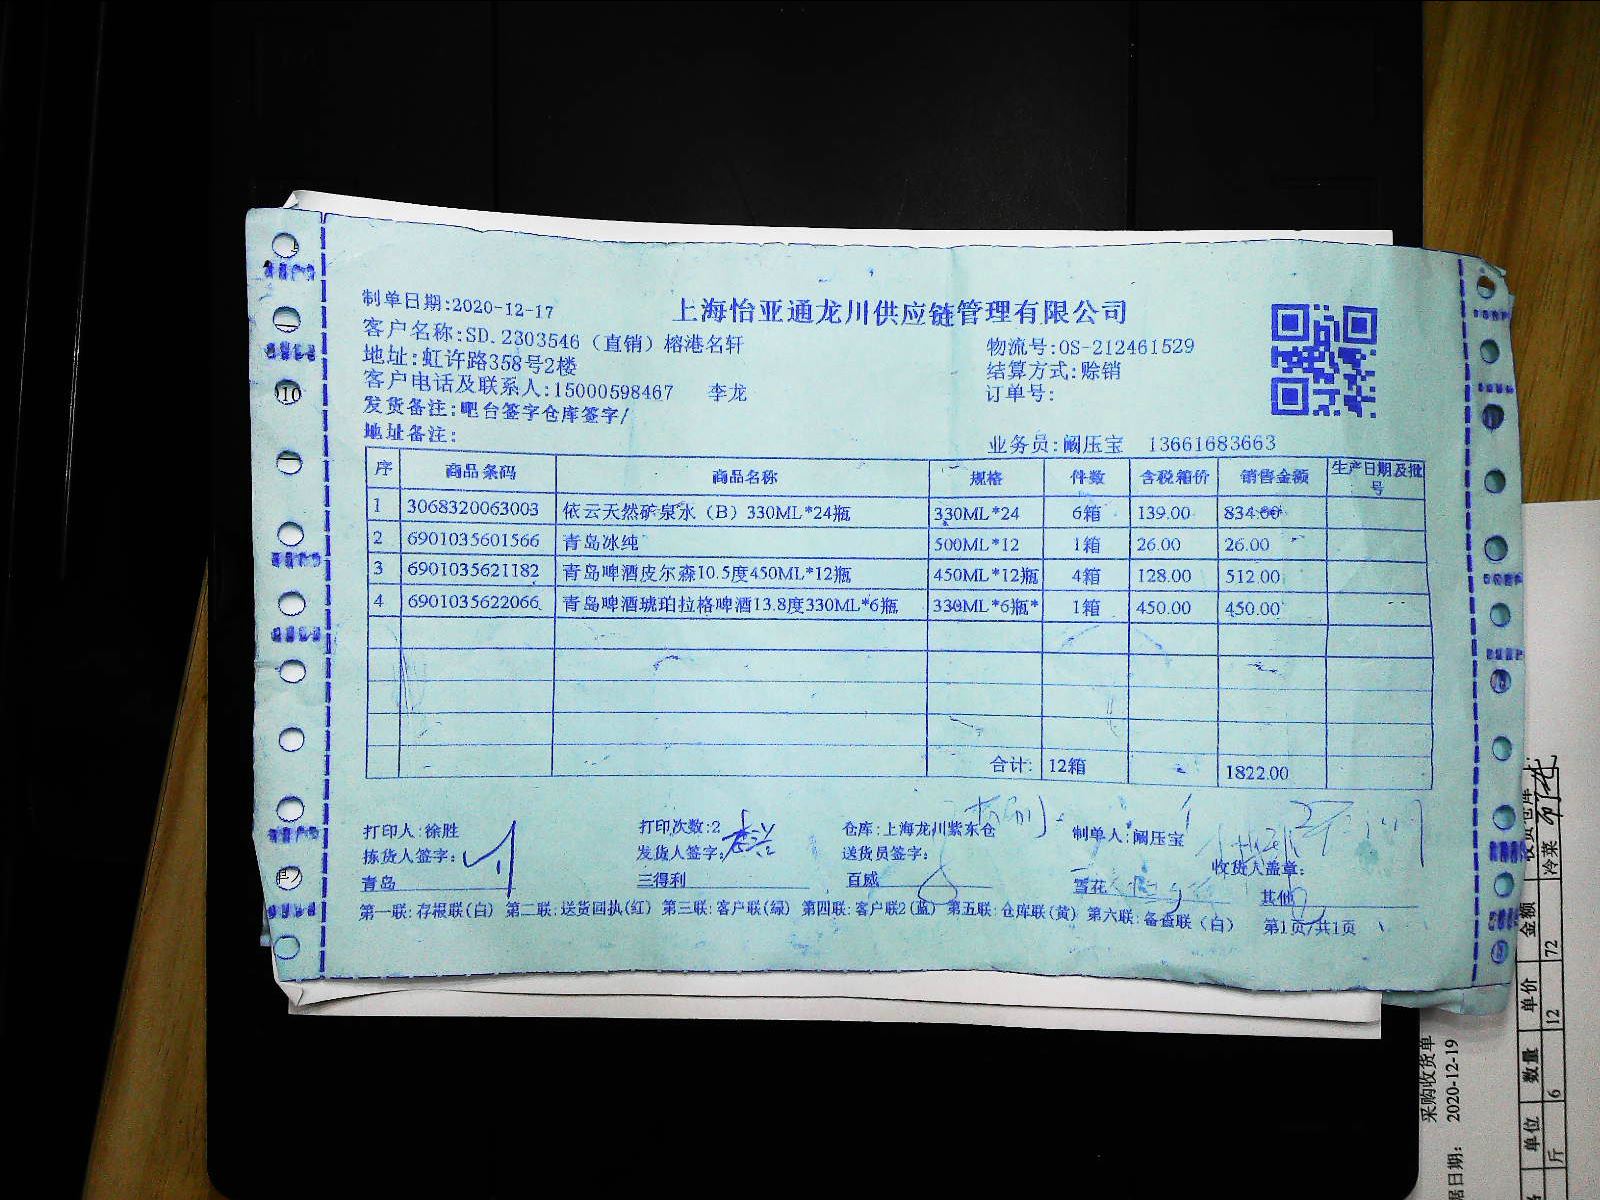 上海怡亚通龙川供应链管理有限公司
制单日期:2020-12-17
客户名称:SD.2303546（直销）榕港名轩
物流号:OS-212461529
地址:虹许路358号2楼
结算方式:赊销
客户电话及联系人:15000598467 李龙
订单号:
发货备注:吧台签字仓库签字/
地址备注:
业务员:阚压宝 13661683663
序 商品条码 商品名称 规格 件数 含税箱价 销售金额 生产日期及批号
1 3068320063003 依云天然矿泉水（B）330ML*24瓶 330ML*24 6箱 139.00 834.00
2 6901035601566 青岛冰纯 500ML*12 1箱 26.00 26.00
3 6901035621182 青岛啤酒皮尔森10.5度450ML*12瓶 450ML*12瓶 4箱 128.00 512.00
4 6901035622066 青岛啤酒琥珀拉格啤酒13.8度330ML*6瓶 330ML*6瓶* 1箱 450.00 450.00
合计: 12箱 1822.00
打印人:徐胜 打印次数:2 仓库:上海龙川紫东仓 制单人:阚压宝
拣货人签字: 发货人签字: 送货员签字: 收货人盖章:
青岛 三得利 百威 雪花 其他
第一联:存根联(白) 第二联:送货回执(红) 第三联:客户联(绿) 第四联:客户联2(蓝) 第五联:仓库联(黄) 第六联:备查联（白） 第1页/共1页
采购收货单
据日期: 2020-12-19
单位 数量 单价 金额 收货仓库
斤 6 12 72 冷菜
10